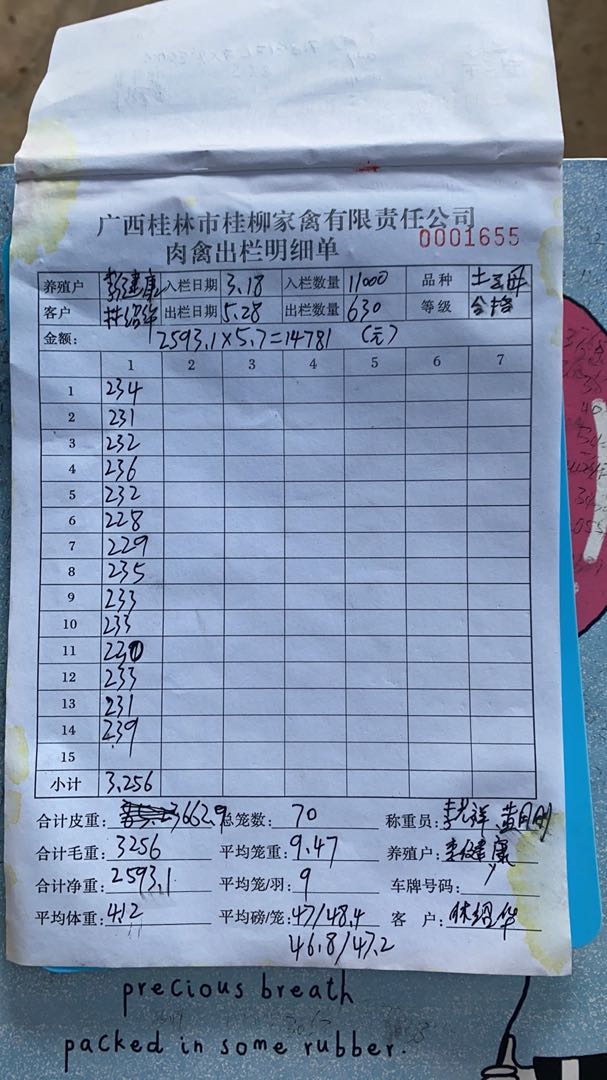 广西桂林市桂柳家禽有限责任公司
肉禽出栏明细单 0001655
养殖户 李健康 入栏日期 3.18 入栏数量 11000 品种
客户 林绍华 出栏日期 5.28 出栏数量 630 等级 合格
金额: 2593.1×5.7=14781 (元)
1 2 3 4 5 6 7
1 234
2 231
3 232
4 236
5 232
6 228
7 229
8 235
9 233
10 233
11
12 233
13 231
14 239
15
小计 3.256
合计皮重: 662.9 总笼数: 70 称重员:
合计毛重: 3256 平均笼重: 9.47 养殖户: 李健康
合计净重: 2593.1 平均笼/羽: 9 车牌号码:
平均体重: 412 平均磅/笼: 47/48.4 客 户: 林绍华
46.8/47.2
precious breath
packed in some rubber.